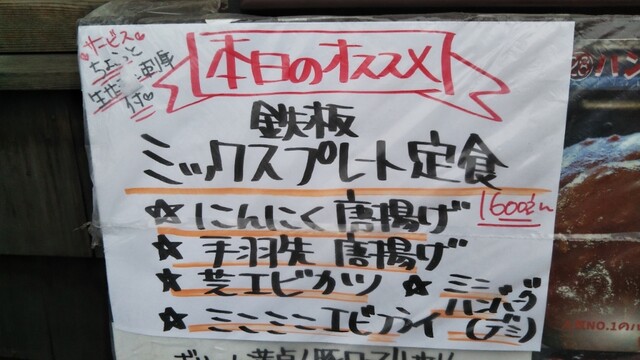 サービス♡
ちょこっと
付♡
本日のオススメ
鉄板
ミックスプレート定食
1600えん
☆にんにく唐揚げ
☆手羽先唐揚げ
☆芝エビカツ ☆ミニハンバーグ(デミ)
☆ミニミニエビフライ